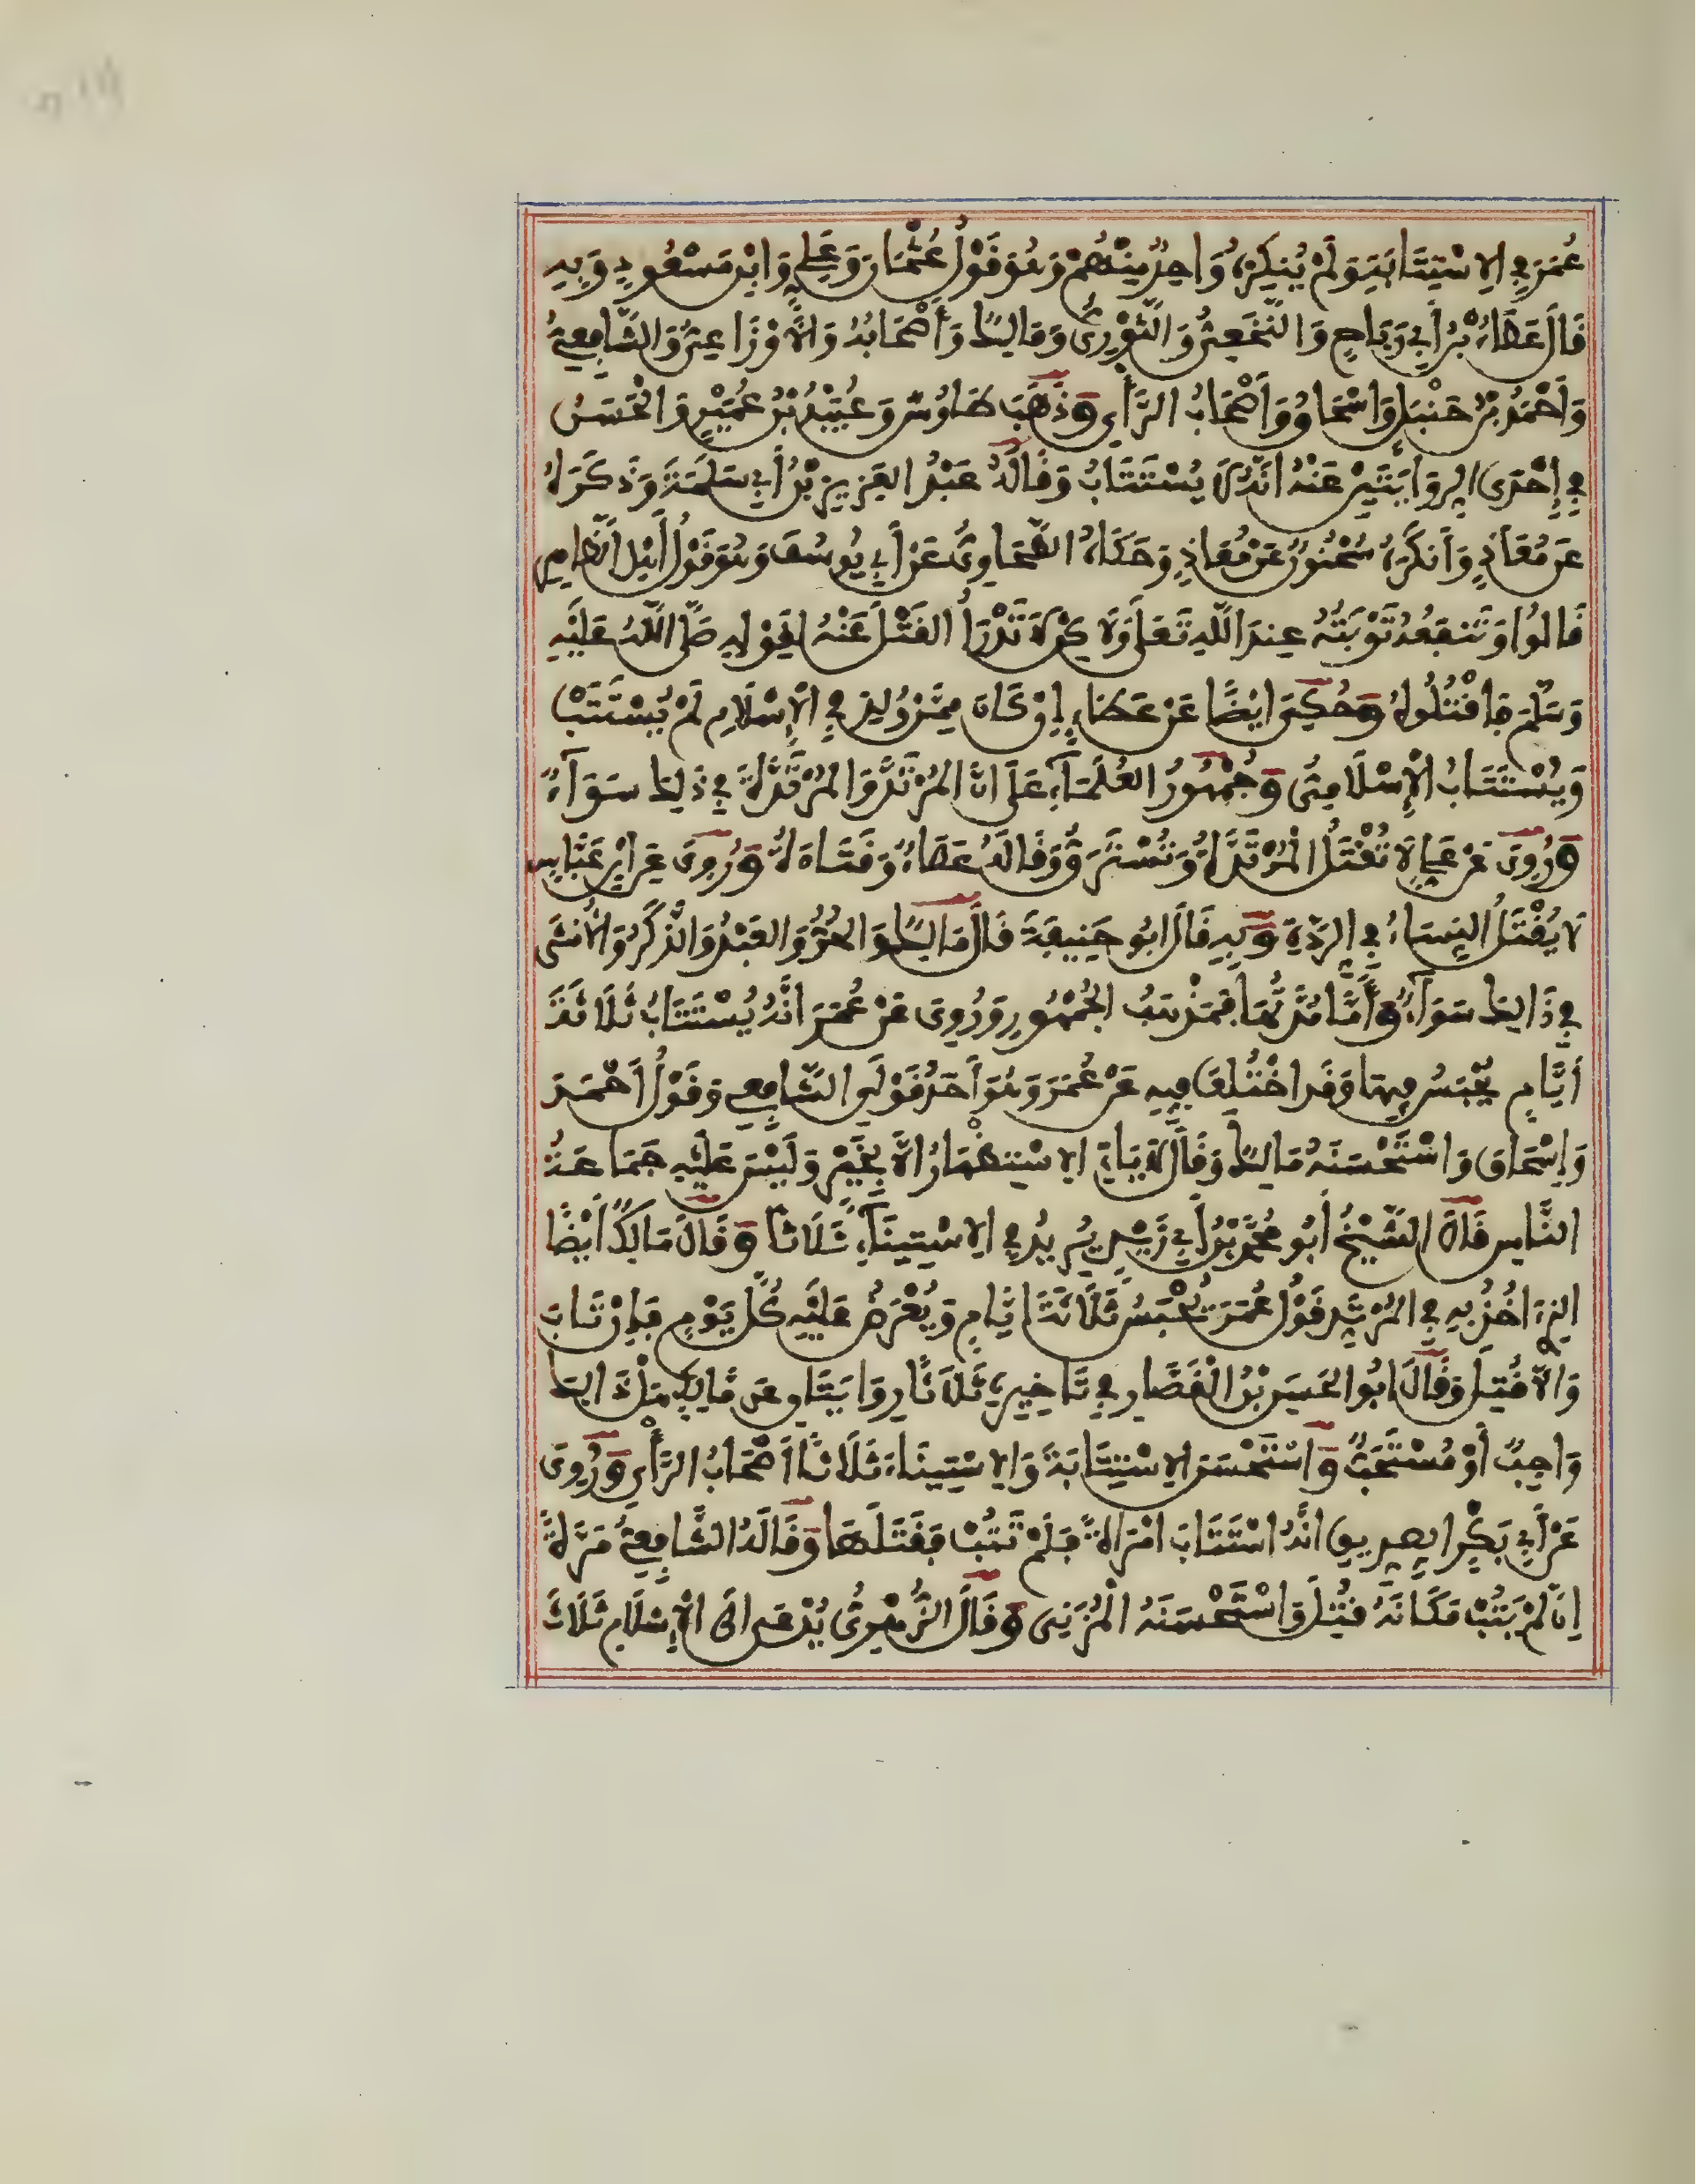 عُمَرَ فِي الِاسْتِتَابَةِ وَلَمْ يُنْكِرْهُ وَاحِدٌ مِنْهُمْ وَهُوَ قَوْلُ عُثْمَانَ وَعَلِيٍّ وَابْنِ مَسْعُودٍ وَبِهِ
قَالَ عَطَاءُ بْنُ أَبِي رَبَاحٍ وَالنَّخَعِيُّ وَالثَّوْرِيُّ وَمَالِكٌ وَأَصْحَابُهُ وَالْأَوْزَاعِيُّ وَالشَّافِعِيُّ
وَأَحْمَدُ بْنُ حَنْبَلٍ وَإِسْحَاقُ وَأَصْحَابُ الرَّأْيِ وَذَهَبَ طَاوُسٌ وَعُبَيْدُ بْنُ عُمَيْرٍ وَالْحَسَنُ
فِي إِحْدَى الرِّوَايَتَيْنِ عَنْهُ أَنَّهُ لَا يُسْتَتَابُ وَقَالَهُ عَبْدُ الْعَزِيزِ بْنُ أَبِي سَلَمَةَ وَذَكَرَهُ
عَنْ مُعَاذٍ وَأَنْكَرَهُ سُحْنُونٌ عَنْ مُعَاذٍ وَحَكَاهُ الطَّحَاوِيُّ عَنْ أَبِي يُوسُفَ وَهُوَ قَوْلُ أَهْلِ الظَّاهِرِ
قَالُوا وَتَنْفَعُهُ تَوْبَتُهُ عِنْدَ اللَّهِ تَعَلَى وَلَاكِنْ لَا تَدْرَأُ الْقَتْلَ عَنْهُ لِقَوْلِهِ صَلَّى اللَّهُ عَلَيْهِ
وَسَلَّمَ فَاقْتُلُوهُ وَحُكِيَ أَيْضًا عَنْ عَطَاءٍ إِنْ كَانَ مِمَّنْ وُلِدَ فِي الْإِسْلَامِ لَمْ يُسْتَتَبْ
وَيُسْتَتَابُ الْإِسْلَامِيُّ وَجُمْهُورُ الْعُلَمَاءِ عَلَى أَنَّ الْمُرْتَدَّ وَالْمُرْتَدَّةَ فِي ذَلِكَ سَوَآءٌ
وَرُوِيَ عَنْ عَلِيٍّ لَا تُقْتَلُ الْمُرْتَدَّةُ وَتُسْتَرَقُّ وَقَالَهُ عَطَاءٌ وَقَتَادَةُ وَرُوِيَ عَنِ ابْنِ عَبَّاسٍ
لَا يُقْتَلُ النِّسَاءُ فِي الرِّدَّةِ وَبِهِ قَالَ أَبُو حَنِيفَةَ قَالَ مَالِكٌ وَالْحُرُّ وَالْعَبْدُ وَالذَّكَرُ وَالْأُنْثَى
فِي ذَالِكَ سَوَآءٌ وَأَمَّا مُدَّتُهَا فَمَذْهَبُ الْجُمْهُورِ وَرُوِيَ عَنْ عُمَرَ أَنَّهُ يُسْتَتَابُ ثَلَاثَةَ
أَيَّامٍ يُحْبَسُ فِيهَا وَقَدِ اخْتُلِفَ فِيهِ عَنْ عُمَرَ وَهُوَ أَحَدُ قَوْلَيِ الشَّافِعِيِّ وَقَوْلُ أَحْمَدَ
وَإِسْحَاقَ وَاسْتَحْسَنَهُ مَالِكٌ وَقَالَ لَا يَاتِي الِاسْتِظْهَارُ إِلَّا بِخَيْرٍ وَلَيْسَ عَلَيْهِ جَمَاعَةُ
النَّاسِ قَالَ الشَّيْخُ أَبُو مُحَمَّدِ بْنُ أَبِي زَيْدٍ يُرِيدُ فِي الِاسْتِينَآءِ ثَلَاثًا وَقَالَ مَالِكٌ أَيْضًا
الَّذِي آخُذُ بِهِ فِي الْمُرْتَدِّ قَوْلُ عُمَرَ يُحْبَسُ ثَلَاثَةَ أَيَّامٍ وَيُعْرَضُ عَلَيْهِ كُلَّ يَوْمٍ فَإِنْ تَابَ
وَإِلَّا قُتِلَ وَقَالَ أَبُو الْحَسَنِ بْنُ الْقَصَّارِ فِي تَاخِيرِهِ ثَلَاثًا رِوَايَتَانِ عَنْ مَالِكٍ هَلْ ذَالِكَ
وَاجِبٌ أَوْ مُسْتَحَبٌّ وَاسْتَحْسَنَ الِاسْتِتَابَةَ وَالِاسْتِينَاءَ ثَلَاثًا أَصْحَابُ الرَّأْيِ وَرُوِيَ
عَنْ أَبِي بَكْرٍ الصِّدِّيقِ أَنَّهُ اسْتَتَابَ امْرَأَةً فَلَمْ تَتُبْ فَقَتَلَهَا وَقَالَهُ الشَّافِعِيُّ مَرَّةً
إِنْ لَمْ يَتُبْ مَكَانَهُ قُتِلَ وَاسْتَحْسَنَهُ الْمُزَنِي وَقَالَ الزُّهْرِيُّ يُدْعَى إِلَى الْإِسْلَامِ ثَلَاثَ